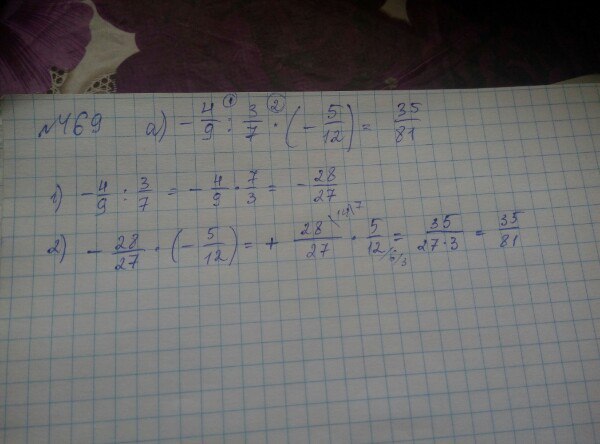 №469 а) -4/9 :① 3/7 ·② (-5/12) = 35/81
1) -4/9 : 3/7 = -4/9 · 7/3 = -28/27
2) -28/27 · (-5/12) = + 28\14\7/27 · 5/12/6/3 = 35/27·3 = 35/81